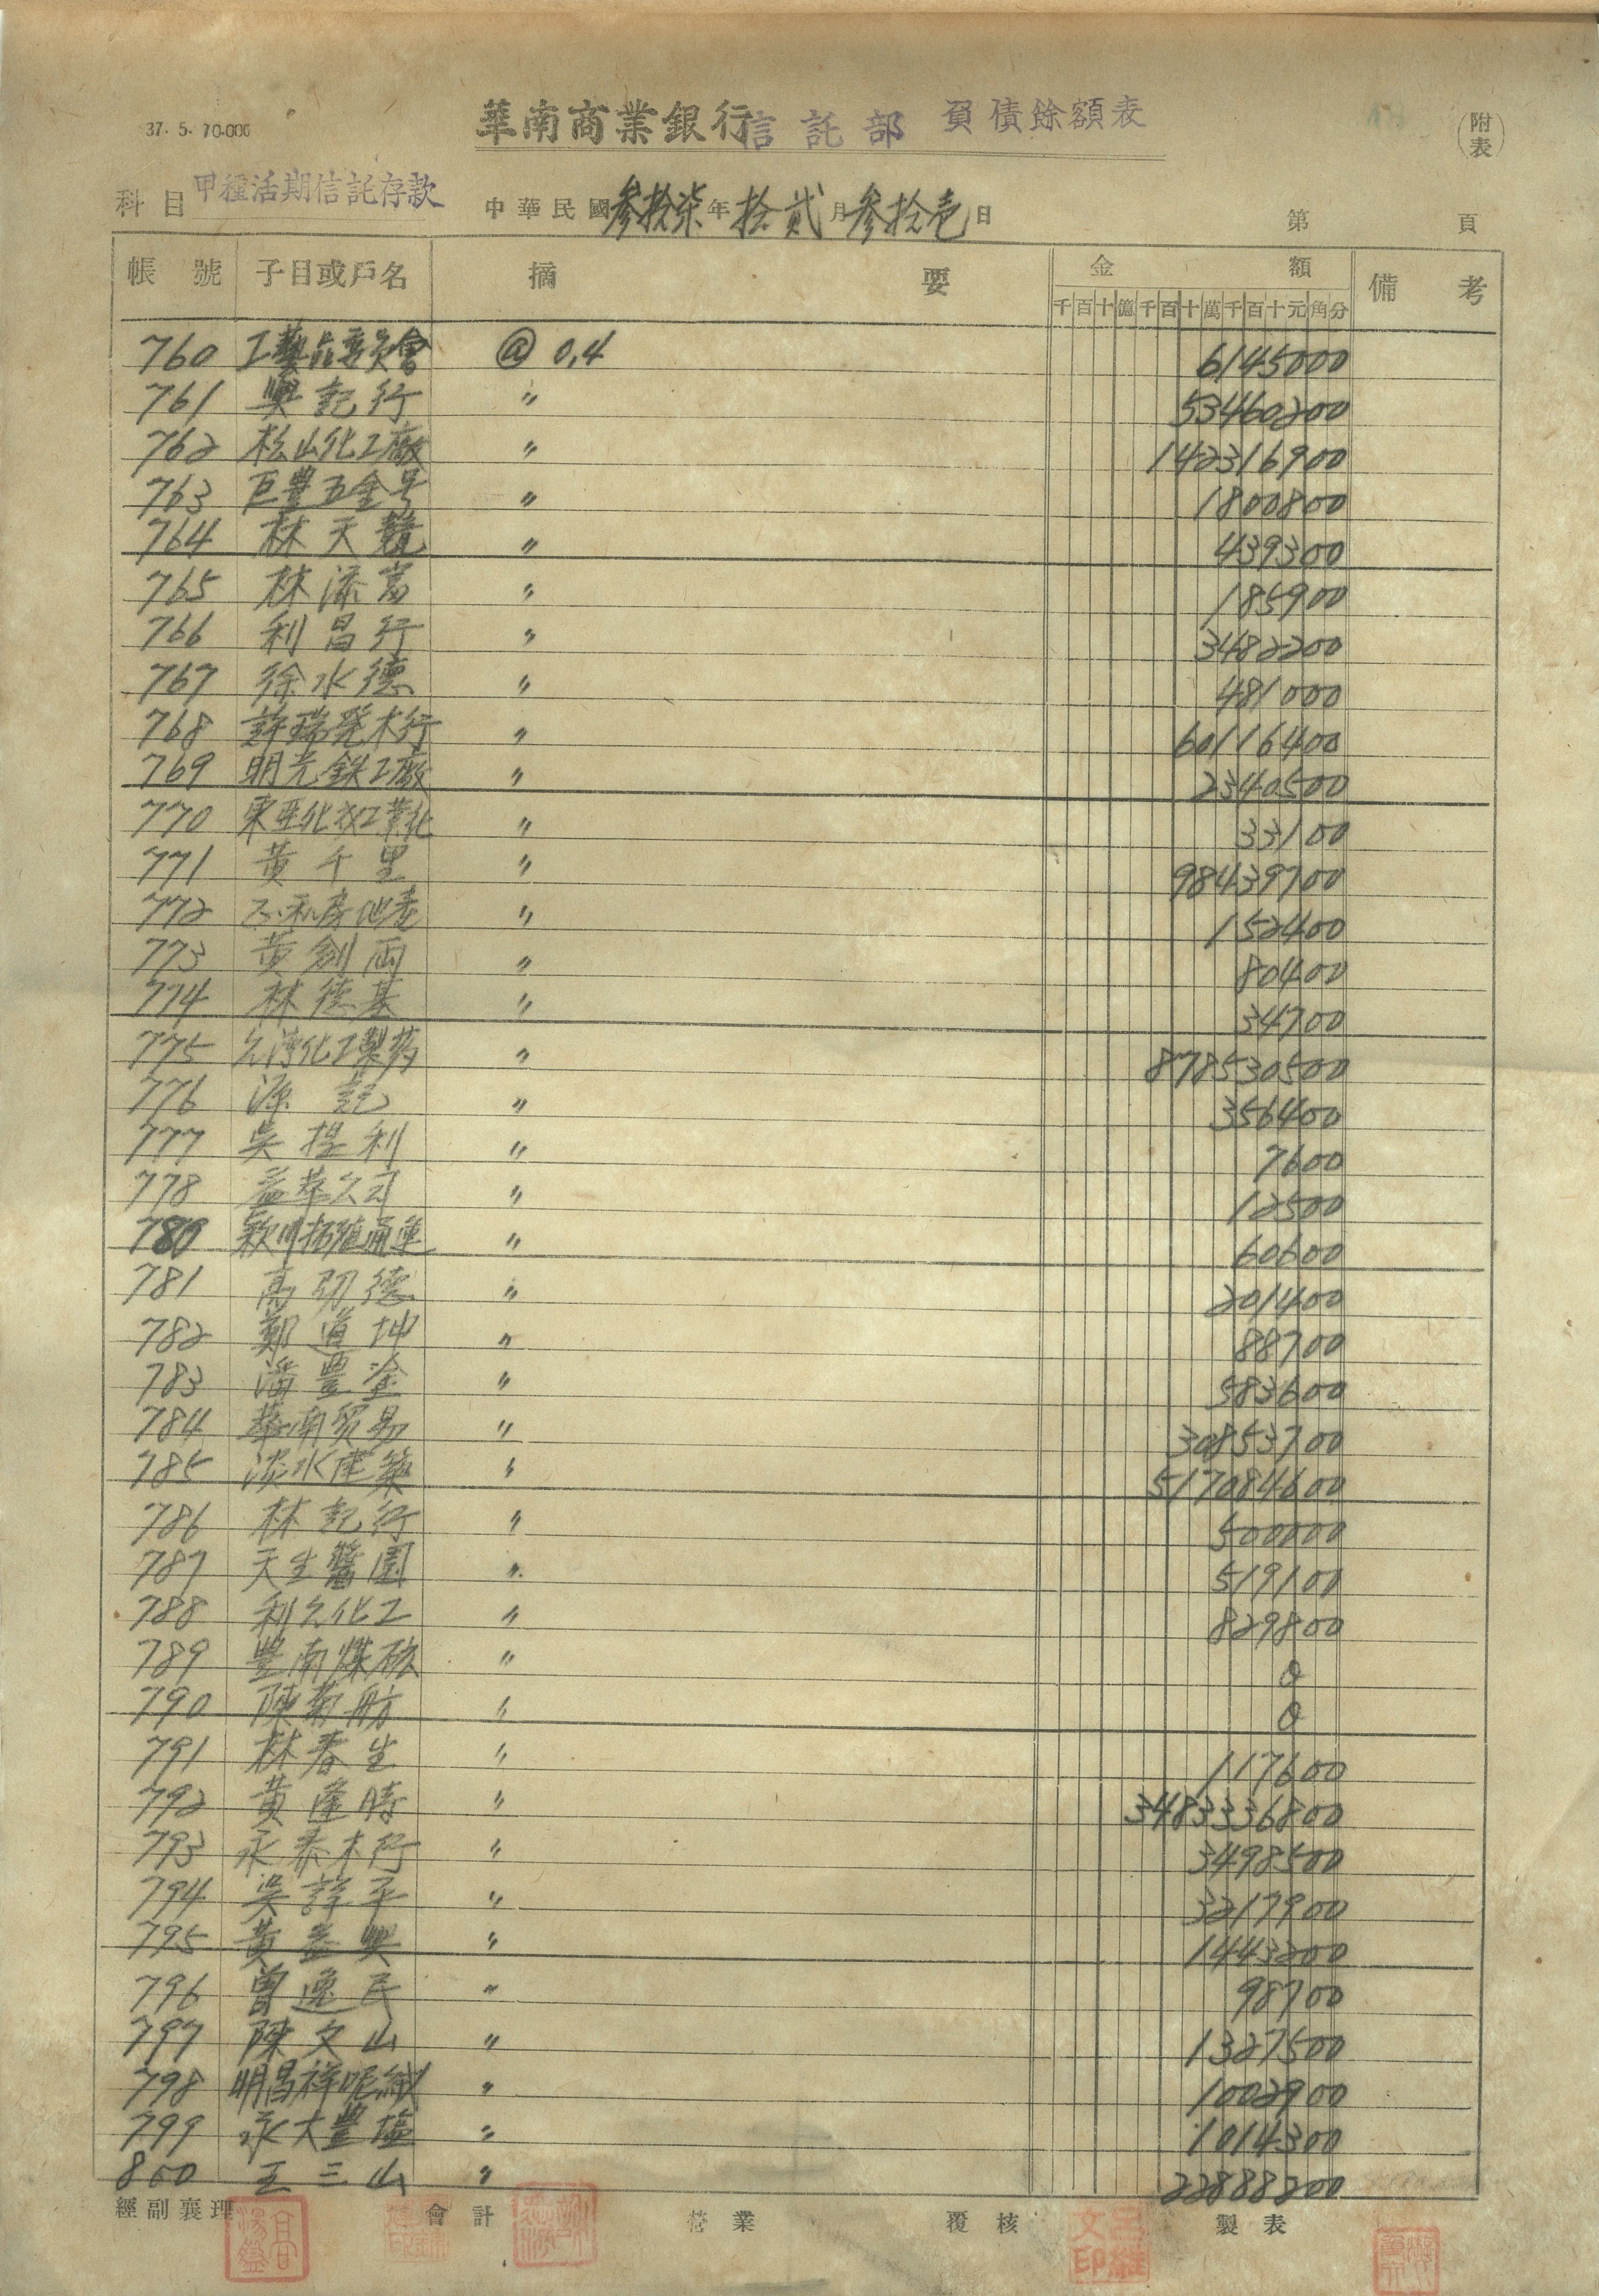 37. 5. 70.000
華南商業銀行信託部 負債餘額表
(附表)
科目 甲種活期信託存款 中華民國參拾柒年拾貳月參拾壱日 第 頁
帳號 子目或戶名 摘要 金額 備考
千百十億千百十萬千百十元角分
760 工藝品委員會 @ 0.4 6145000
761 興記行 〃 53460200
762 松山化工廠 〃 142316900
763 巨豐五金号 〃 1800800
764 林天競 〃 439300
765 林添富 〃 185900
766 利昌行 〃 3482200
767 徐水德 〃 481000
768 許瑞発木行 〃 60116400
769 明光鉄工廠 〃 2340500
770 東亞化 〃 33100
771 黃千里 〃 98439700
772 房地產 〃 152400
773 黃劍雨 〃 80400
774 林德基 〃 34700
775 化工製葯 〃 878530500
776 源記 〃 356400
777 吳提利 〃 7600
778 益華公司 〃 12500
780 穎川拓殖通運 〃 60600
781 高砏德 〃 201400
782 鄭道坤 〃 88700
783 潘豊塗 〃 583600
784 華南貿易 〃 30853700
785 淡水產築 〃 517084600
786 林記行 〃 500000
787 天生醬園 〃 519100
788 利久化工 〃 829800
789 豐南煤砿 〃 0
790 陳菊舫 〃 0
791 林春生 〃 117600
792 黃逢時 〃 3483336800
793 永泰木行 〃 3498500
794 吳評平 〃 3217900
795 黃益興 〃 1443200
796 曾逸民 〃 98700
797 陳文山 〃 1327500
798 明昌祥呢絨 〃 1002900
799 永大豐塩 〃 1014300
800 王三山 〃 22888200
經副襄理 會計 營業 覆核 製表